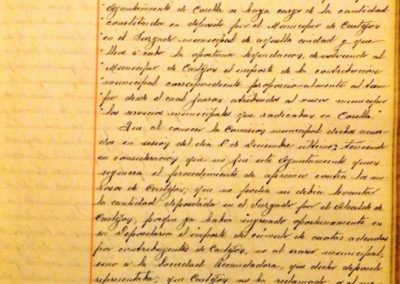 Ayuntamiento de Corella se haga cargo de la cantidad
constituida en depósito por el Municipio de Castejón
en el Juzgado municipal de aquella ciudad y que
lleve a cabo la oportuna liquidación, devolviendo al
Municipio de Castejón el importe de la contribución
municipal correspondiente proporcionalmente al tiem-
po desde el cual fueron atribuidos al nuevo municipio
los servicios municipales que radicaban en Corella."
Que al conocer la Comisión municipal dicho acuer-
do en sesión del día 1º de Diciembre último: teniendo
en consideración que no fué este Ayuntamiento quien
siguiera el procedimiento de apremio contra la
de Castejón; que no podía ni debía levantar
la cantidad depositada en el Juzgado por el Alcalde de
Castejón, porque ya había ingresado oportunamente en
su Depositaría el importe del de cuotas adeudas
por contribuyentes de Castejón, no al erario municipal,
sino a la Sociedad Recaudadora, que dicho depósito
representaba; que Castejón no ha reclamado